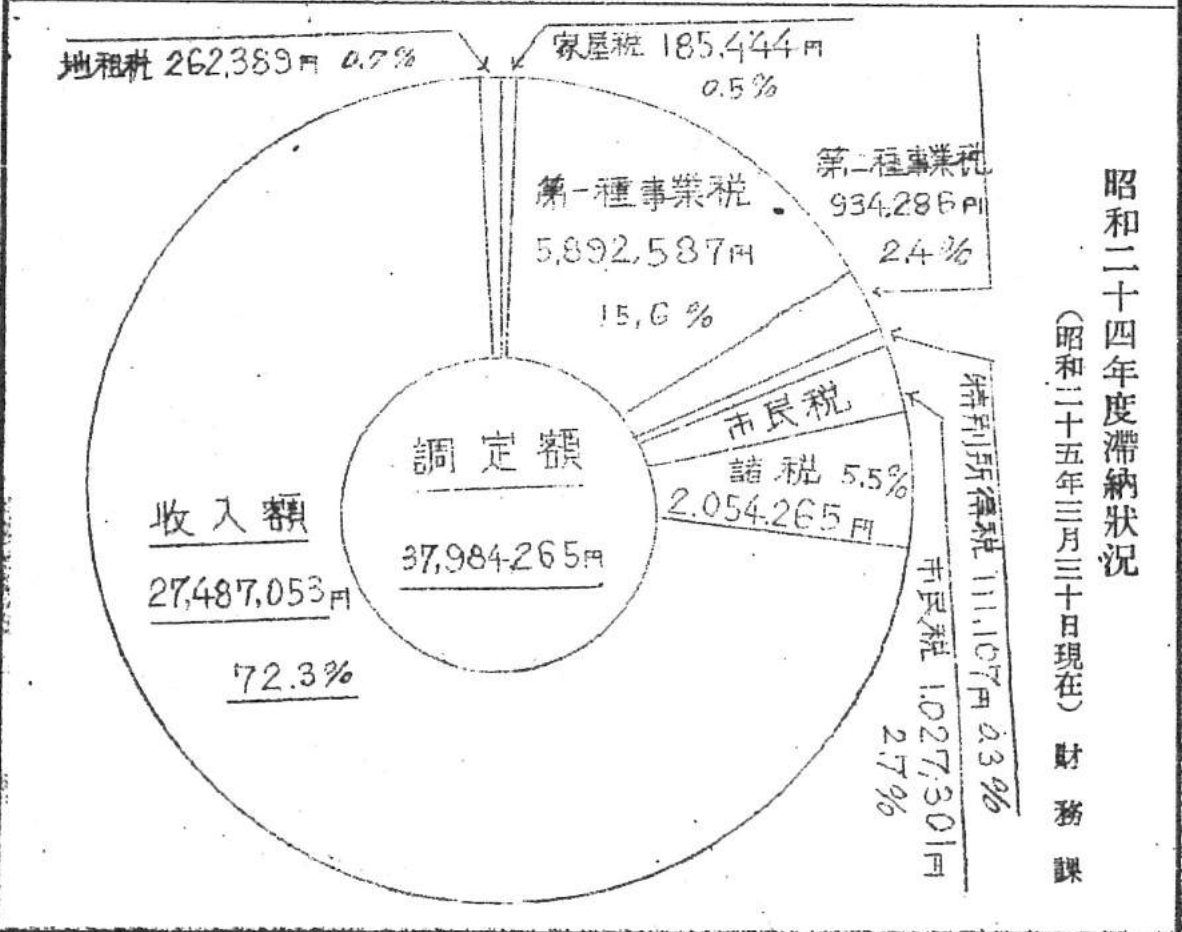 昭和二十四年度滯納狀况
（昭和二十五年三月三十日現在）財務課
地租税 262,389円 0.7%
家屋税 185,444円
0.5%
第一種事業税
5,892,587円
15,6%
第二種事業税
934,286円
2,4%
特別所得税 111,107円 0.3%
市民税 1,027,301円
2,7%
市民税
諸税 5.5%
2,054,265円
調定額
37,984,265円
収入額
27,487,053円
72.3%